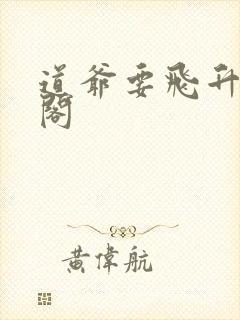 道爺要飛升
閣
黃偉航